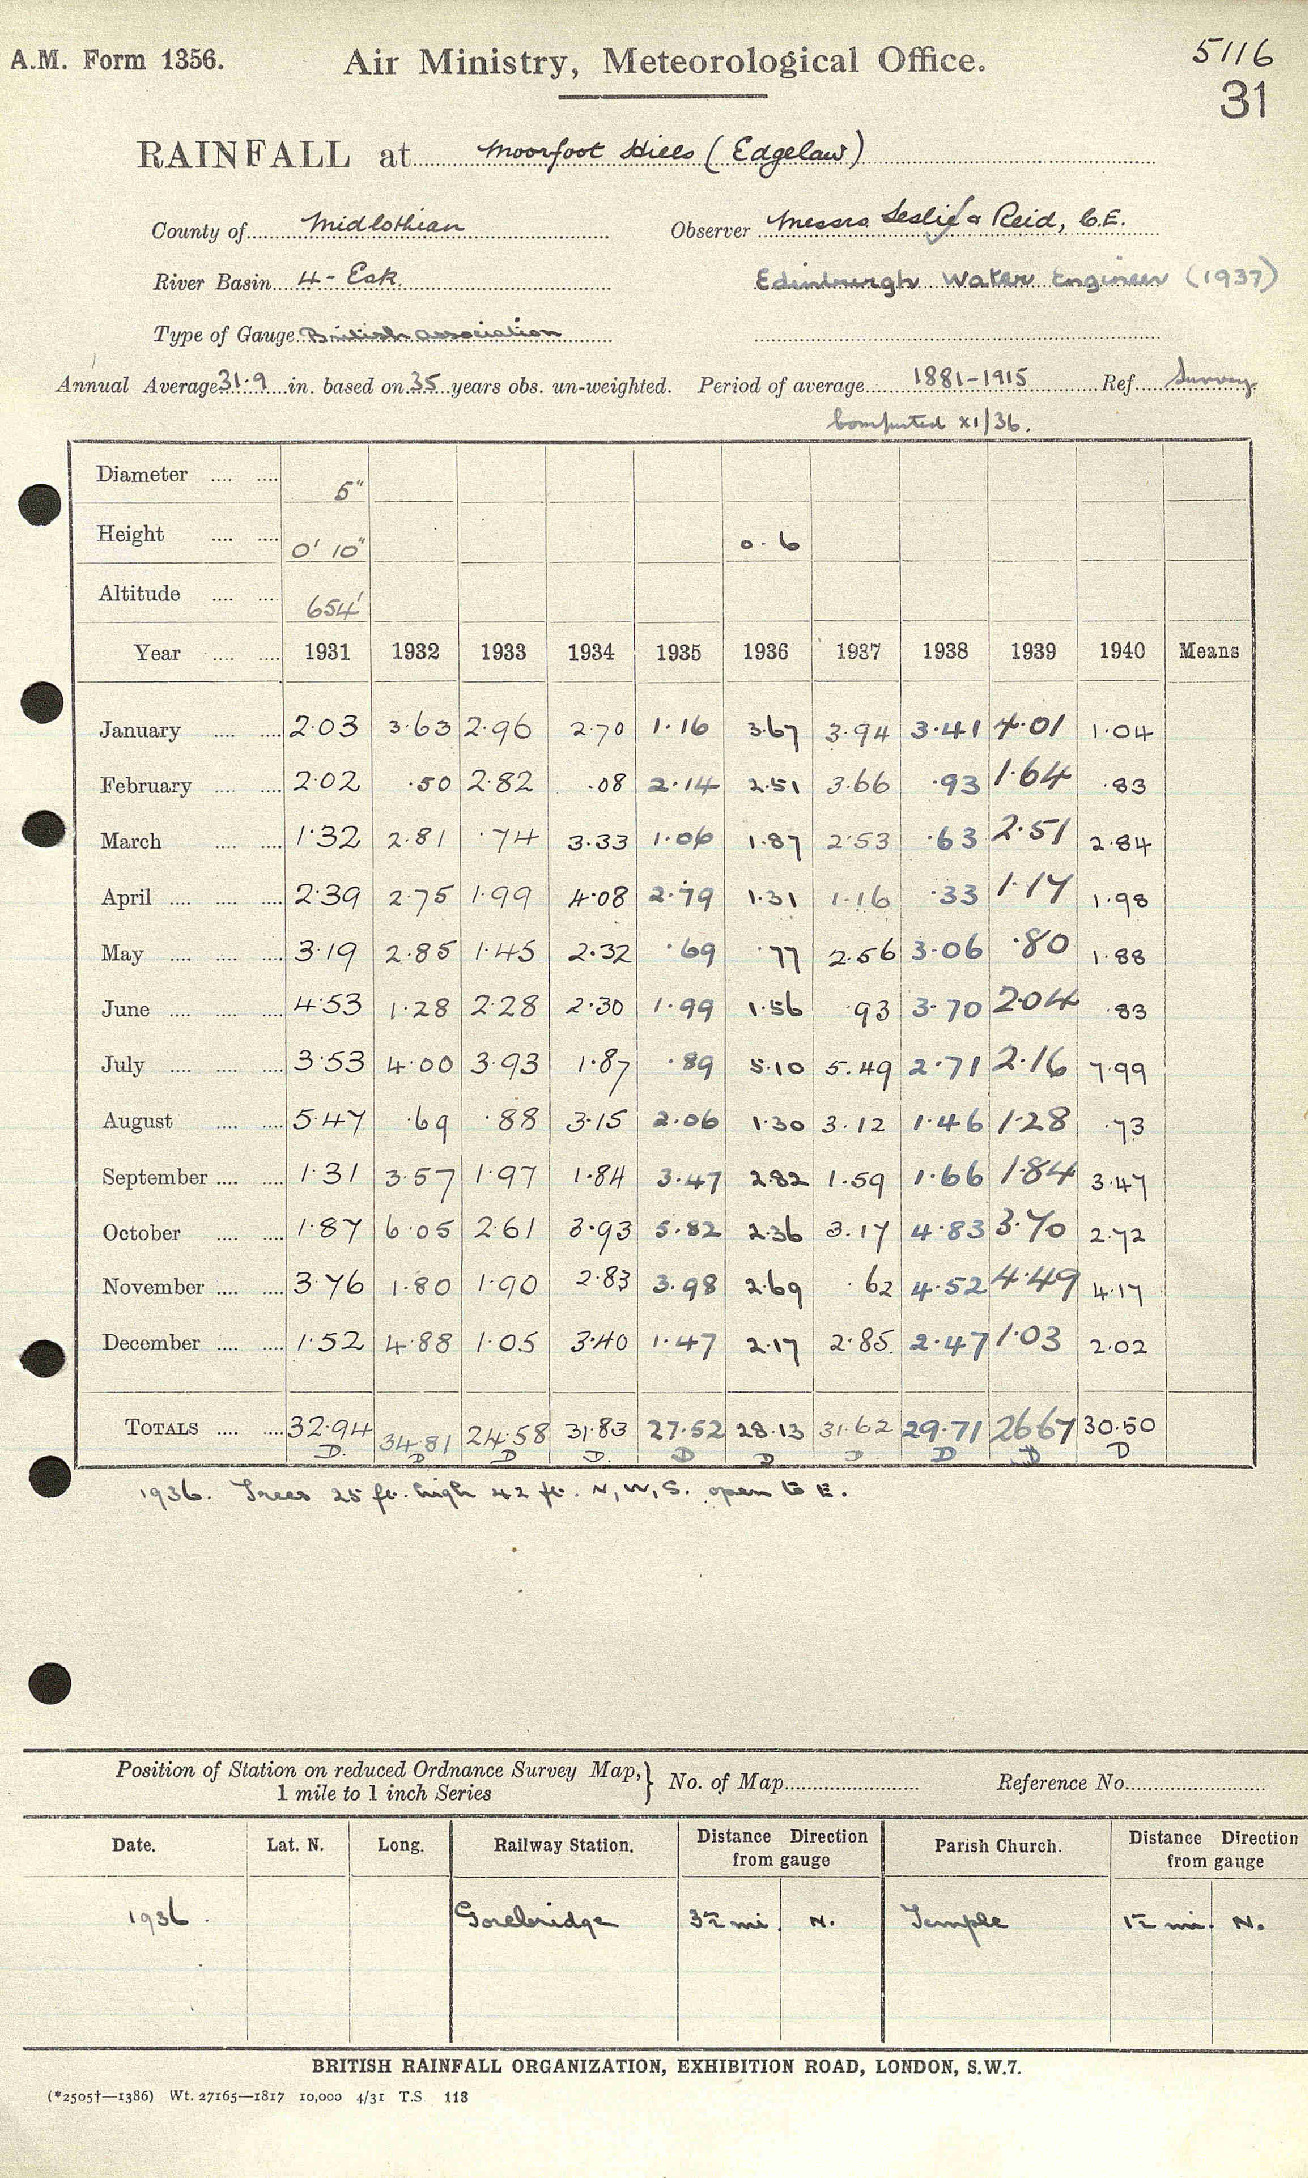 A.M. Form 1356. Air Ministry, Meteorological Office. 5116
31
RAINFALL at Moorfoot Hills (Edgelaw)
County of Midlothian Observer Messrs. Leslie & Reid, C.E.
River Basin 4 - Esk. Edinburgh Water Engineer (1937)
Type of Gauge British Association
Annual Average 31.9 in. based on 35 years obs. un-weighted. Period of average 1881-1915 Ref. Survey.
Computed XI/36.
Diameter 5"
Height 0' 10" 0.6
Altitude 654'
Year 1931 1932 1933 1934 1935 1936 1937 1938 1939 1940 Means
January 2.03 3.63 2.96 2.70 1.16 3.67 3.94 3.41 4.01 1.04
February 2.02 .50 2.82 .08 2.14 2.51 3.66 .93 1.64 .83
March 1.32 2.81 .74 3.33 1.06 1.87 2.53 .63 2.51 2.84
April 2.39 2.75 1.99 4.08 2.79 1.31 1.16 .33 1.17 1.98
May 3.19 2.85 1.45 2.32 .69 .77 2.56 3.06 .80 1.88
June 4.53 1.28 2.28 2.30 1.99 1.56 .93 3.70 2.04 .83
July 3.53 4.00 3.93 1.87 .89 5.10 5.49 2.71 2.16 7.99
August 5.47 .69 .88 3.15 2.06 1.30 3.12 1.46 1.28 .73
September 1.31 3.57 1.97 1.84 3.47 2.82 1.59 1.66 1.84 3.47
October 1.87 6.05 2.61 3.93 5.82 2.36 3.17 4.83 3.70 2.72
November 3.76 1.80 1.90 2.83 3.98 2.69 .62 4.52 4.49 4.17
December 1.52 4.88 1.05 3.40 1.47 2.17 2.85 2.47 1.03 2.02
TOTALS 32.94 34.81 24.58 31.83 27.52 28.13 31.62 29.71 26.67 30.50
D. D D D. D D D D D D
1936. Trees 25 ft. high 42 ft. N, W, S. open to E.
Position of Station on reduced Ordnance Survey Map, } No. of Map Reference No.
1 mile to 1 inch Series
Date. Lat. N. Long. Railway Station. Distance Direction from gauge Parish Church. Distance Direction from gauge
1936. Gorebridge 3½ mi. N. Temple 1½ mi. N.
BRITISH RAINFALL ORGANIZATION, EXHIBITION ROAD, LONDON, S.W.7.
(*2505†—1386) Wt. 27165—1817 10,000 4/31 T.S 118